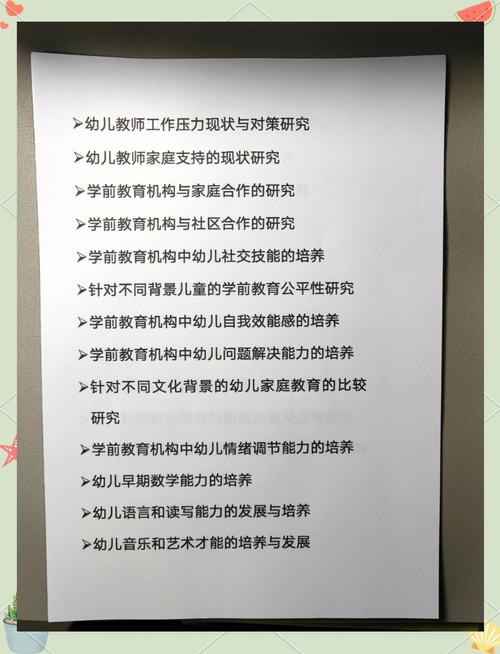 ➢幼儿教师工作压力现状与对策研究
➢幼儿教师家庭支持的现状研究
➢学前教育机构与家庭合作的研究
➢学前教育机构与社区合作的研究
➢学前教育机构中幼儿社交技能的培养
➢针对不同背景儿童的学前教育公平性研究
➢学前教育机构中幼儿自我效能感的培养
➢学前教育机构中幼儿问题解决能力的培养
➢针对不同文化背景的幼儿家庭教育的比较
研究
➢学前教育机构中幼儿情绪调节能力的培养
➢幼儿早期数学能力的培养
➢幼儿语言和读写能力的发展与培养
➢幼儿音乐和艺术才能的培养与发展